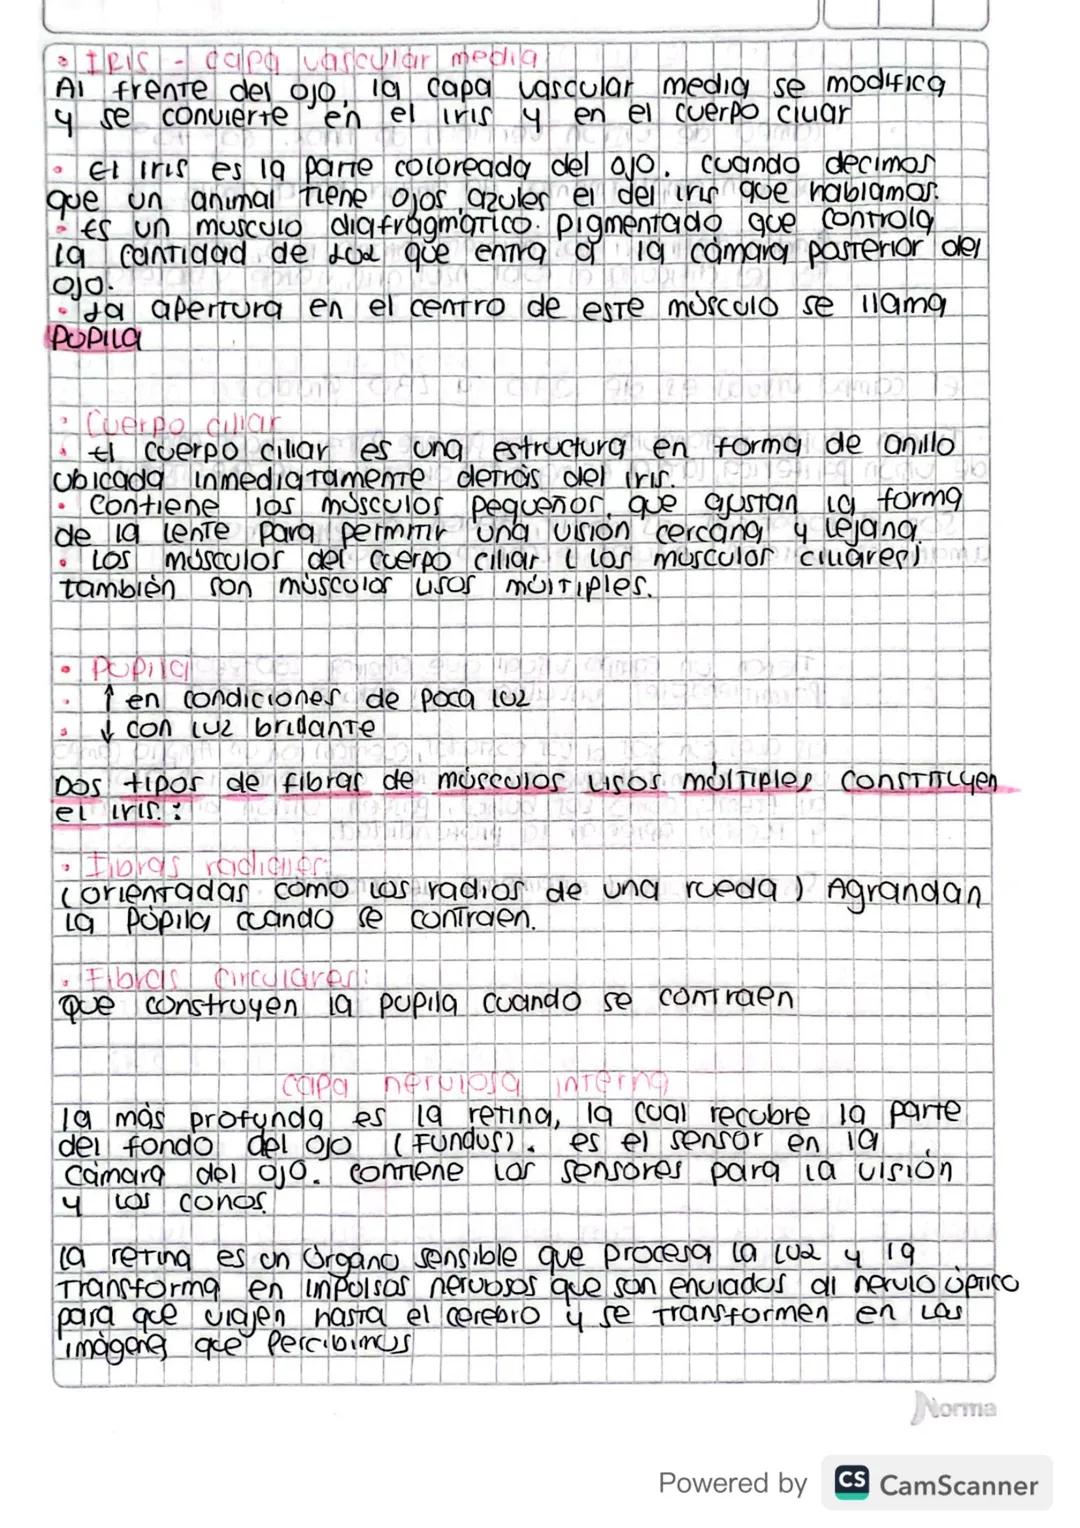 • IRIS - capa vascular media
Al frente del ojo, la capa vascular media se modifica
y se convierte en el iris y en el cuerpo ciliar
• El iris es la parte coloreada del ojo. cuando decimos
que un animal tiene ojos azules el del iris que hablamos.
• Es un musculo diafragmático. pigmentado que controla
la cantidad de luz que entra a la cámara posterior del
ojo.
• La apertura en el centro de este músculo se llama
PUPILA
• Cuerpo ciliar
• El cuerpo ciliar es una estructura en forma de anillo
ubicada inmediatamente detrás del iris.
• Contiene los músculos pequeños, que ajustan la forma
de la lente para permitir una visión cercana y lejana.
• Los músculos del cuerpo ciliar ( los musculos ciliares)
también son músculos lisos múltiples.
• Pupila
• ↑ en condiciones de poca luz
• ↓ con luz brillante
Dos tipos de fibras de músculos lisos múltiples constituyen
el iris. :
• Fibras radiales:
(orientadas como los radios de una rueda ) Agrandan
la pupila cuando se contraen.
• Fibras circulares:
que construyen la pupila cuando se contraen
capa nerviosa interna
la más profunda es la retina, la cual recubre la parte
del fondo del ojo (Fundus). es el sensor en la
Cámara del ojo. contiene los sensores para la visión
y los conos.
la retina es un órgano sensible que procesa la luz y la
transforma en impulsos nerviosos que son enviados al nervio óptico
para que viajen hasta el cerebro y se transformen en las
imágenes que percibimos
Norma
Powered by CS CamScanner